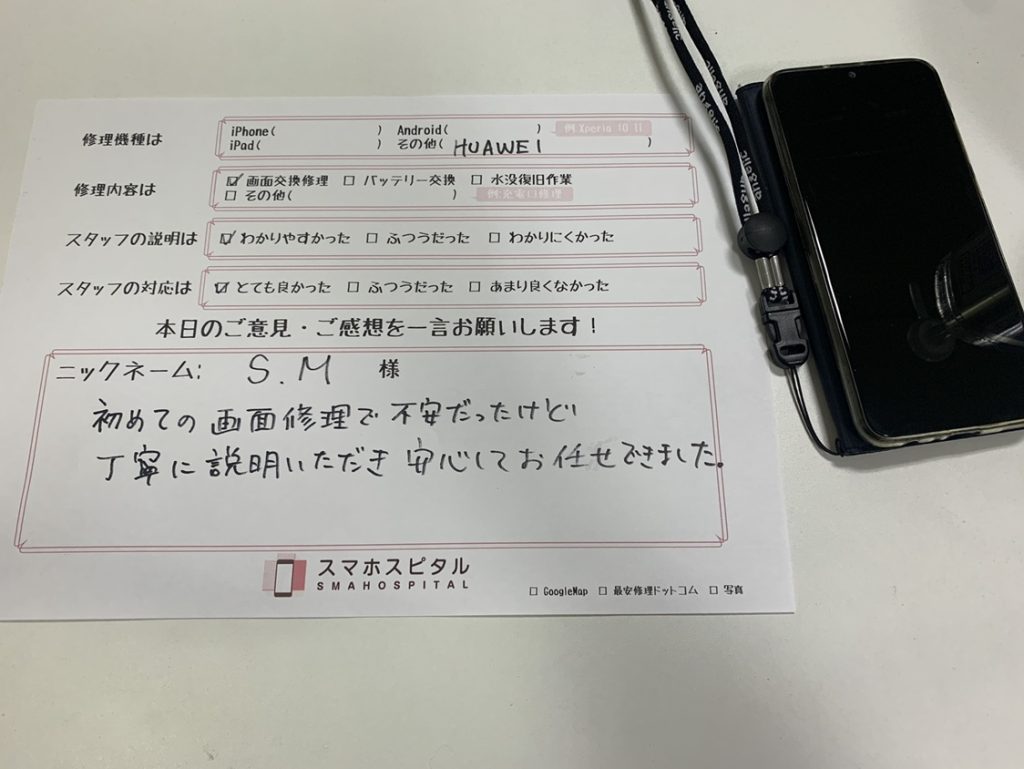 修理機種は
iPhone(　　　) Android(　　　) 例 Xperia 10 II
iPad(　　　) その他( HUAWEI )
修理内容は
☑ 画面交換修理 □ バッテリー交換 □ 水没復旧作業
□ その他(　　　) 例:充電口修理
スタッフの説明は ☑ わかりやすかった □ ふつうだった □ わかりにくかった
スタッフの対応は ☑ とても良かった □ ふつうだった □ あまり良くなかった
本日のご意見・ご感想を一言お願いします！
ニックネーム: S.M 様
初めての画面修理で不安だったけど
丁寧に説明いただき安心してお任せできました。
スマホスピタル
SMAHOSPITAL
□ GoogleMap □ 最安修理ドットコム □ 写真